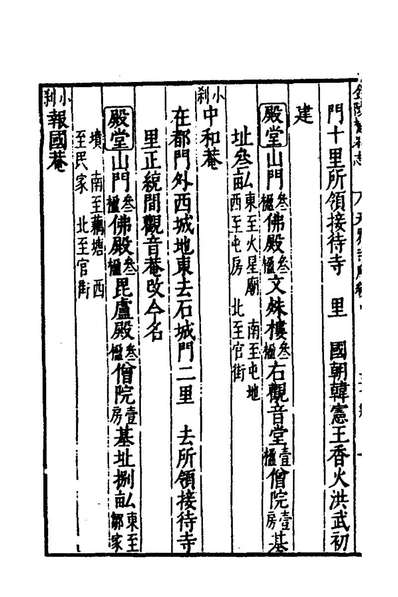 門十里所領接待寺 里 國朝韓憲王香火洪武初
建
殿堂山門叁楹佛殿叁楹文殊樓叁楹右觀音堂壹楹僧院壹房基
址叁畝東至火星廟 南至屯地 西至屯房 北至官街
小刹中和菴
在都門外西城地東去石城門二里 去所領接待寺
里正統間觀音菴改今名
殿堂山門叁楹佛殿叁楹毘盧殿叁楹僧院壹房基址捌畝東至鄒家
墳 南至藕塘 西至民家 北至官街
小刹報國菴